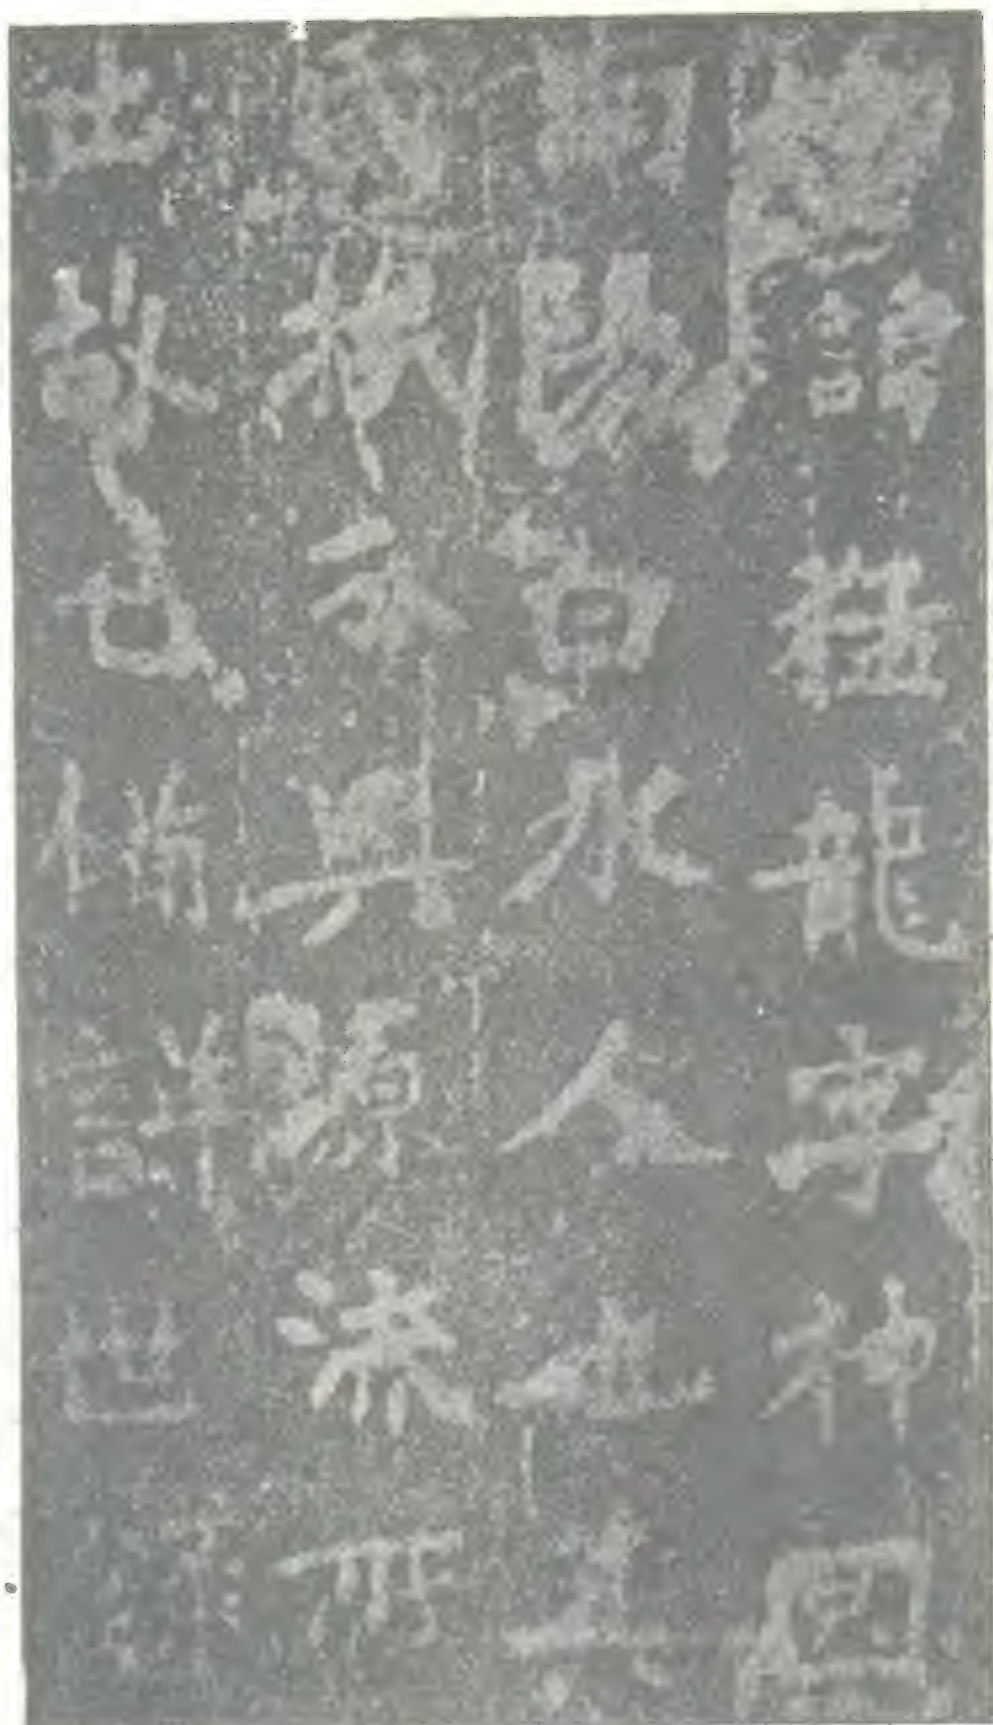 諱猛龍字神㘝
南陽白水人也其
族分興源流所
出故已備詳世